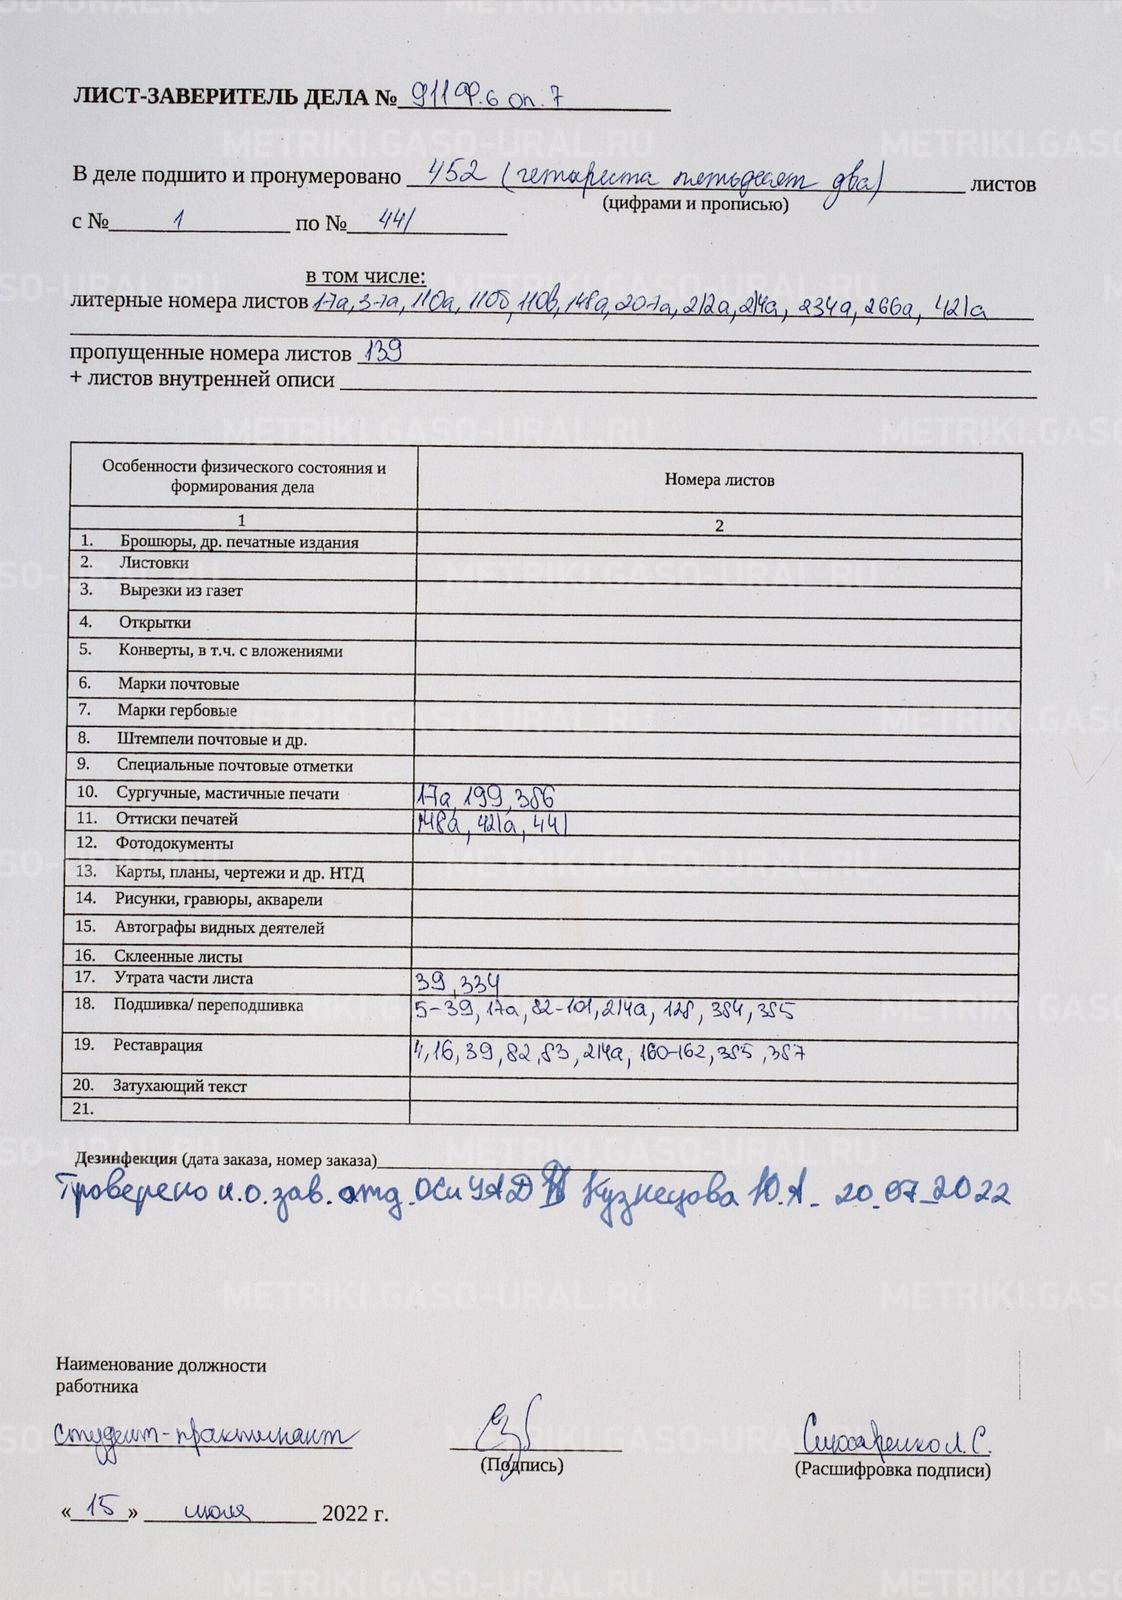 ЛИСТ-ЗАВЕРИТЕЛЬ ДЕЛА № 911 Ф.6 оп.7
В деле подшито и пронумеровано 452 (четыреста пятьдесят два) листов
(цифрами и прописью)
с № 1 по № 441
в том числе:
литерные номера листов 17а, 37а, 110а, 110б, 110в, 148а, 207а, 212а, 214а, 234а, 266а, 421а
пропущенные номера листов 139
+ листов внутренней описи
Особенности физического состояния и формирования дела Номера листов
1 2
1. Брошюры, др. печатные издания
2. Листовки
3. Вырезки из газет
4. Открытки
5. Конверты, в т.ч. с вложениями
6. Марки почтовые
7. Марки гербовые
8. Штемпели почтовые и др.
9. Специальные почтовые отметки
10. Сургучные, мастичные печати 17а, 199, 386
11. Оттиски печатей 148а, 421а, 441
12. Фотодокументы
13. Карты, планы, чертежи и др. НТД
14. Рисунки, гравюры, акварели
15. Автографы видных деятелей
16. Склеенные листы
17. Утрата части листа 39, 334
18. Подшивка/ переподшивка 5-39, 17а, 82-101, 214а, 128, 384, 385
19. Реставрация 4, 16, 39, 82, 83, 214а, 160-162, 385, 387
20. Затухающий текст
21.
Дезинфекция (дата заказа, номер заказа)
Проверено и.о. зав. отд. ОСиУАД Кузнецова Ю.А. 20.07.2022
Наименование должности
работника
студент-практикант
(Подпись)
Слюсаренко Л.С.
(Расшифровка подписи)
« 15 » июля 2022 г.
METRIKI.GASO-URAL.RU